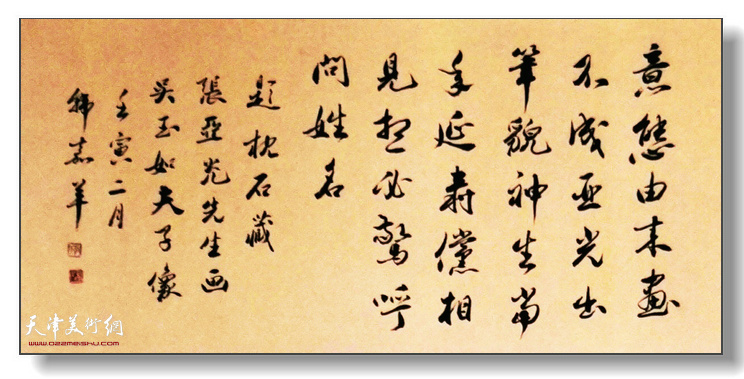 意態由来畫
不成亞光出
筆貌神生當
年延壽儻相
見想必驚呼
問姓名
題枕石藏
張亞光先生画
吴玉如夫子像
壬寅二月
韩嘉羊
天津美術網
www.022meishu.com